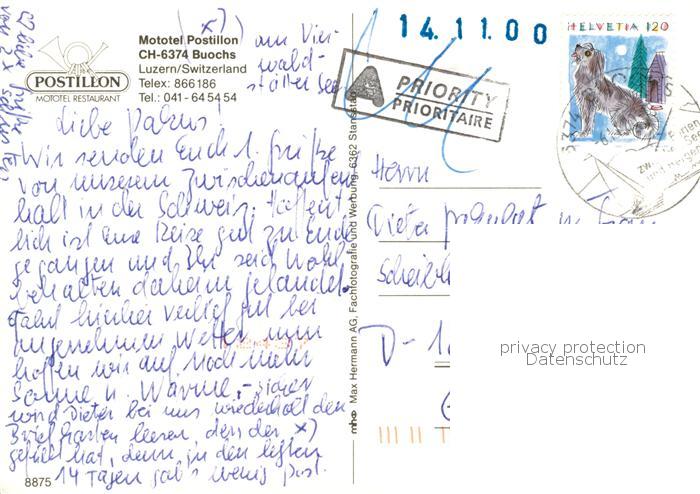 Mototel Postillon
CH-6374 Buochs
Luzern/Switzerland
Telex: 866186
Tel.: 041 - 64 54 54
POSTILLON
MOTOTEL RESTAURANT
x) am Vier-
wald-
stätter See
14.11.00
A PRIORITY
PRIORITAIRE
HELVETIA 120
Liebe
Wir senden Euch 1. Grüße
von unserem Zwischenaufent
halt in der Schweiz. Hoffent
lich ist Eure Reise gut zu Ende
gegangen und Ihr seid wohl
behalten daheim gelandet.
Fahrt hierher verlief gut bei
angenehmem Wetter, nun
hoffen wir auf noch mehr
Sonne u. Wärme, - sicher
wird Dieter bei uns wiederholt den
Briefkasten leeren, den der x)
gefüllt hat, denn in den letzten
14 Tagen gab's wenig Post.
8875
mhe Max Hermann AG, Fachfotografie und Werbung, 6362 Stansstad
Herrn
Dieter
D-1
privacy protection
Datenschutz